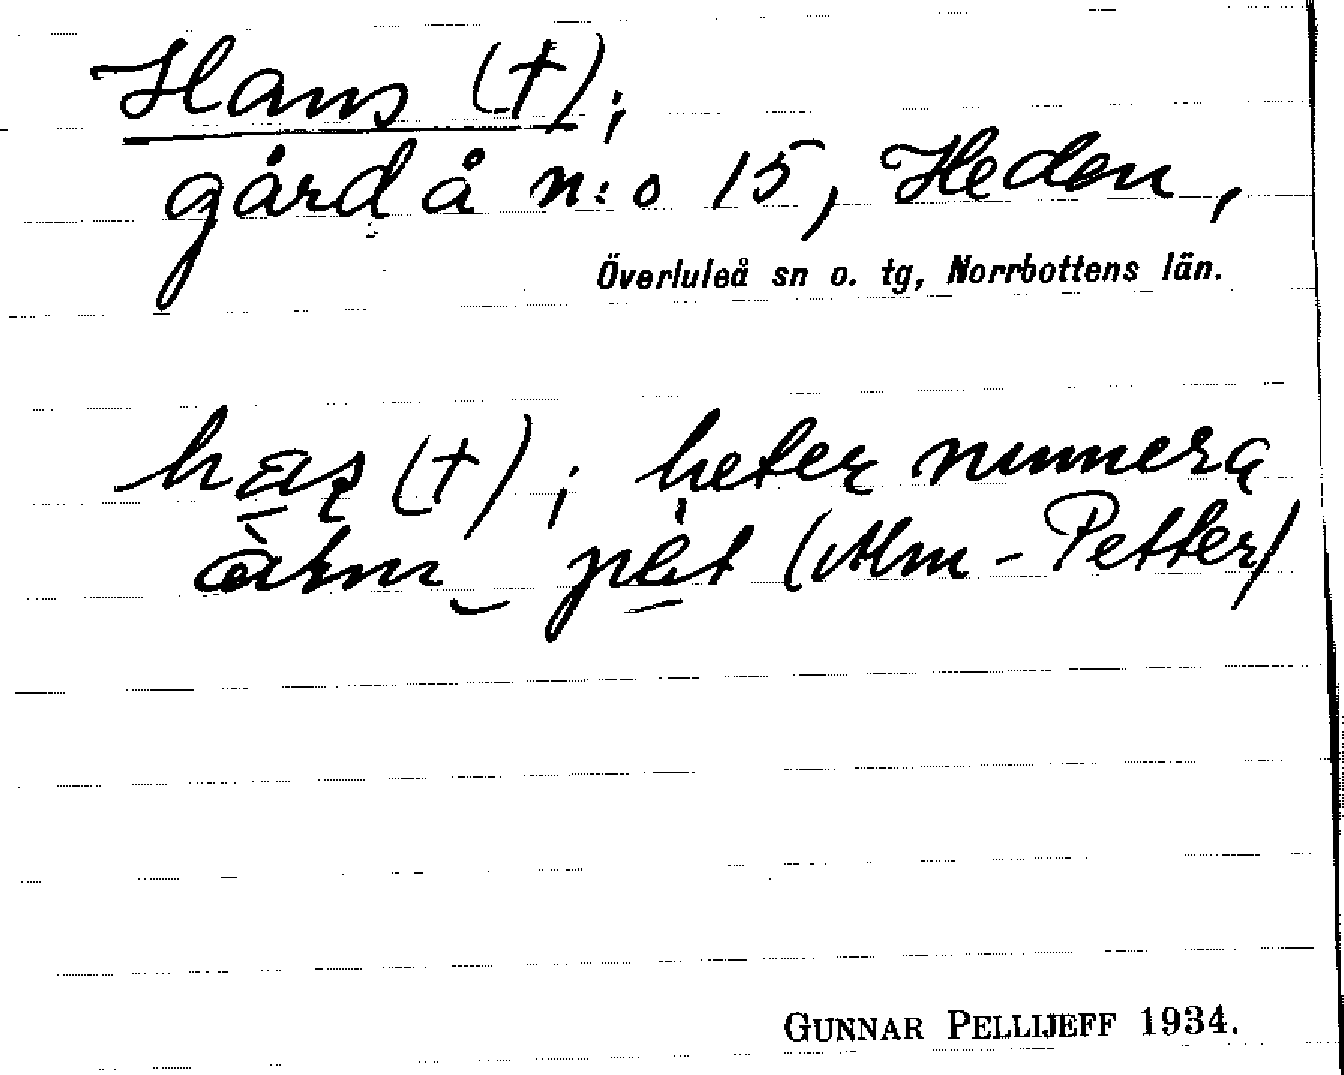 Hans (†);
gård å n:o 15, Heden,
Överluleå sn o. tg, Norrbottens län.
(†); heter numera
(Alm-Petter)
GUNNAR PELLIJEFF 1934.